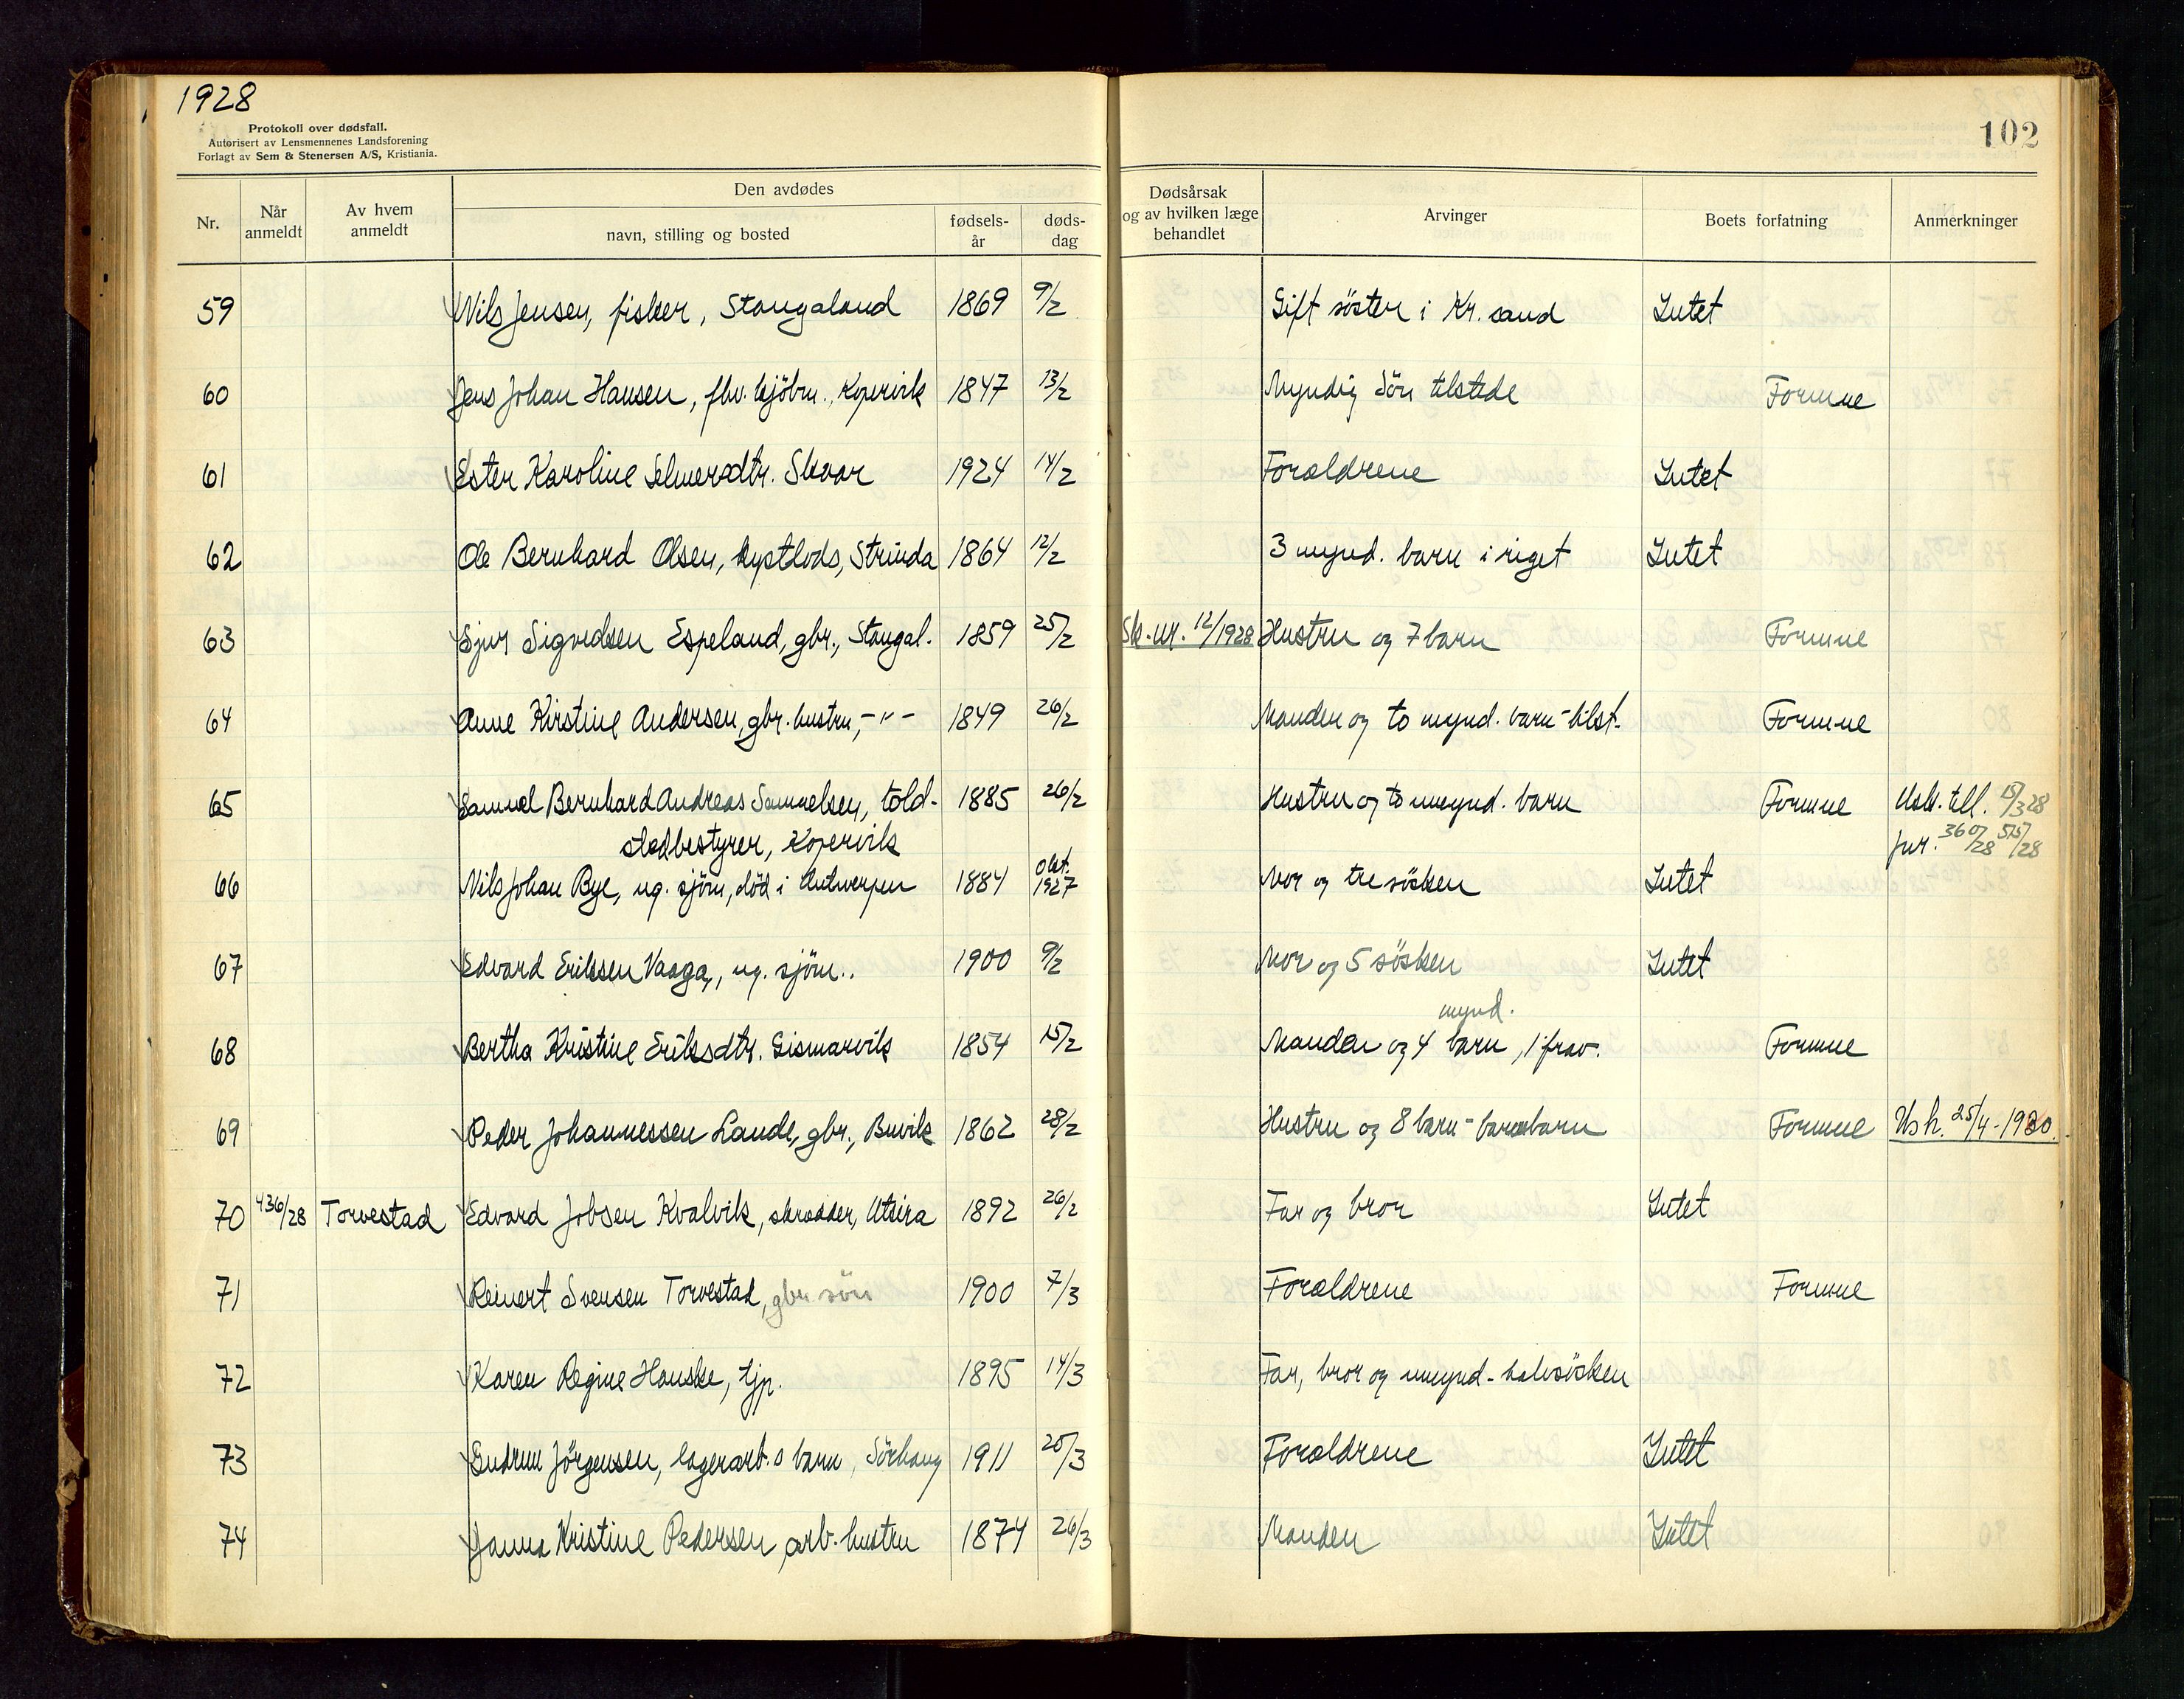 1928
Protokoll over dødsfall.
Autorisert av Lensmennenes Landsforening
Forlagt av Sem & Stenersen A/S, Kristiania.
102
Nr.
Når anmeldt
Av hvem anmeldt
Den avdødes
navn, stilling og bosted
fødsels-år
døds-dag
Dødsårsak og av hvilken læge behandlet
Arvinger
Boets forfatning
Anmerkninger
59 Nils Jensen, fisker, Stangaland 1869 9/2 Gift söster i Kr.sand Intet
60 Jens Johan Hansen, fhv. kjöbm., Kopervik 1847 13/2 Myndig Sön tilstede Formue
61 Ester Karoline Selmersdtr. Skaar 1924 14/2 Forældrene Intet
62 Ole Bernhard Olsen, kystlods, Strinda 1864 12/2 3 mynd. barn i riget Intet
63 Sjur Sigvedsen Espeland, gbr., Stangal. 1859 25/2 Sk.nr. 12/1928 Hustru og 7 barn Formue
64 Anne Kirstine Andersen, gbr. hustru, -"- 1849 26/2 Manden og to mynd. barn - tilst. Formue
65 Samuel Bernhard Andreas Samuelsen, told- 1885 26/2 Hustru og to umynd. barn Formue Usk. till. 15/3 28
stedbestyrer, Kopervik Jnr. 360/28 515/28
66 Nils Johan Bye, ug. sjöm, död i Antwerpen 1884 Okt. 1927 Mor og tre sösken Intet
67 Edvard Eriksen Vaaga, ug. sjöm.. 1900 9/2 Mor og 5 sösken Intet
mynd.
68 Bertha Kristine Eriksdtr. Gismarvik 1854 15/2 Manden og 4 barn, 1 frav. Formue
69 Peder Johannessen Lande, gbr., Buvik 1862 28/2 Hustru og 8 barn - barnebarn Formue Usk. 25/4-1930.
70 436/28 Torvestad Edvard Jobsen Kvalvik, skrædder, Utsira 1892 26/2 Far og bror Intet
71 Reinert Svensen Torvestad, gbr. sön 1900 7/3 Forældrene Formue
72 Karen Regine Hauske, tjp. 1895 14/3 Far, bror og umynd. halvsösken
73 Gudrun Jörgensen, lagerarb.s barn, Sörhaug 1911 20/3 Forældrene Intet
74 Janna Kristine Pedersen, arb. hustru 1874 26/3 Manden Intet